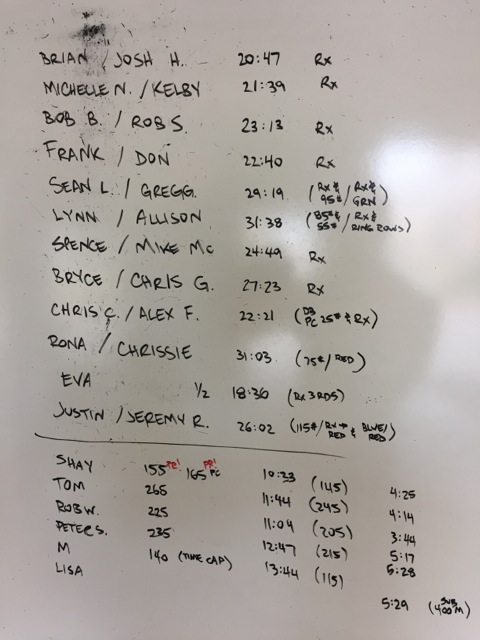 BRIAN / JOSH H. 20:47 Rx
MICHELLE N. / KELBY 21:39 Rx
BOB B. / ROB S. 23:13 Rx
FRANK / DON 22:40 Rx
SEAN L. / GREGG. 29:19 (Rx & 95# / Rx & GRN)
LYNN / ALLISON 31:38 (85# & 55# / Rx & RING ROWS)
SPENCE / MIKE MC 24:49 Rx
BRYCE / CHRIS G. 27:23 Rx
CHRIS C. / ALEX F. 22:21 (DB PC 25# & Rx)
RONA / CHRISSIE 31:03 (75# / RED)
EVA 1/2 18:36 (Rx 3 RDS)
JUSTIN / JEREMY R. 26:02 (115# / Rx RED & BLUE/RED)
SHAY 155 PR! 165 PR! PC 10:23 (145) 4:25
TOM 265 11:44 (245) 4:14
ROB W. 225 11:04 (205) 3:44
PETER S. 235 12:47 (215) 5:17
M 140 (TIME CAP) 13:44 (115) 5:28
LISA 5:29 (SUB 400 M)